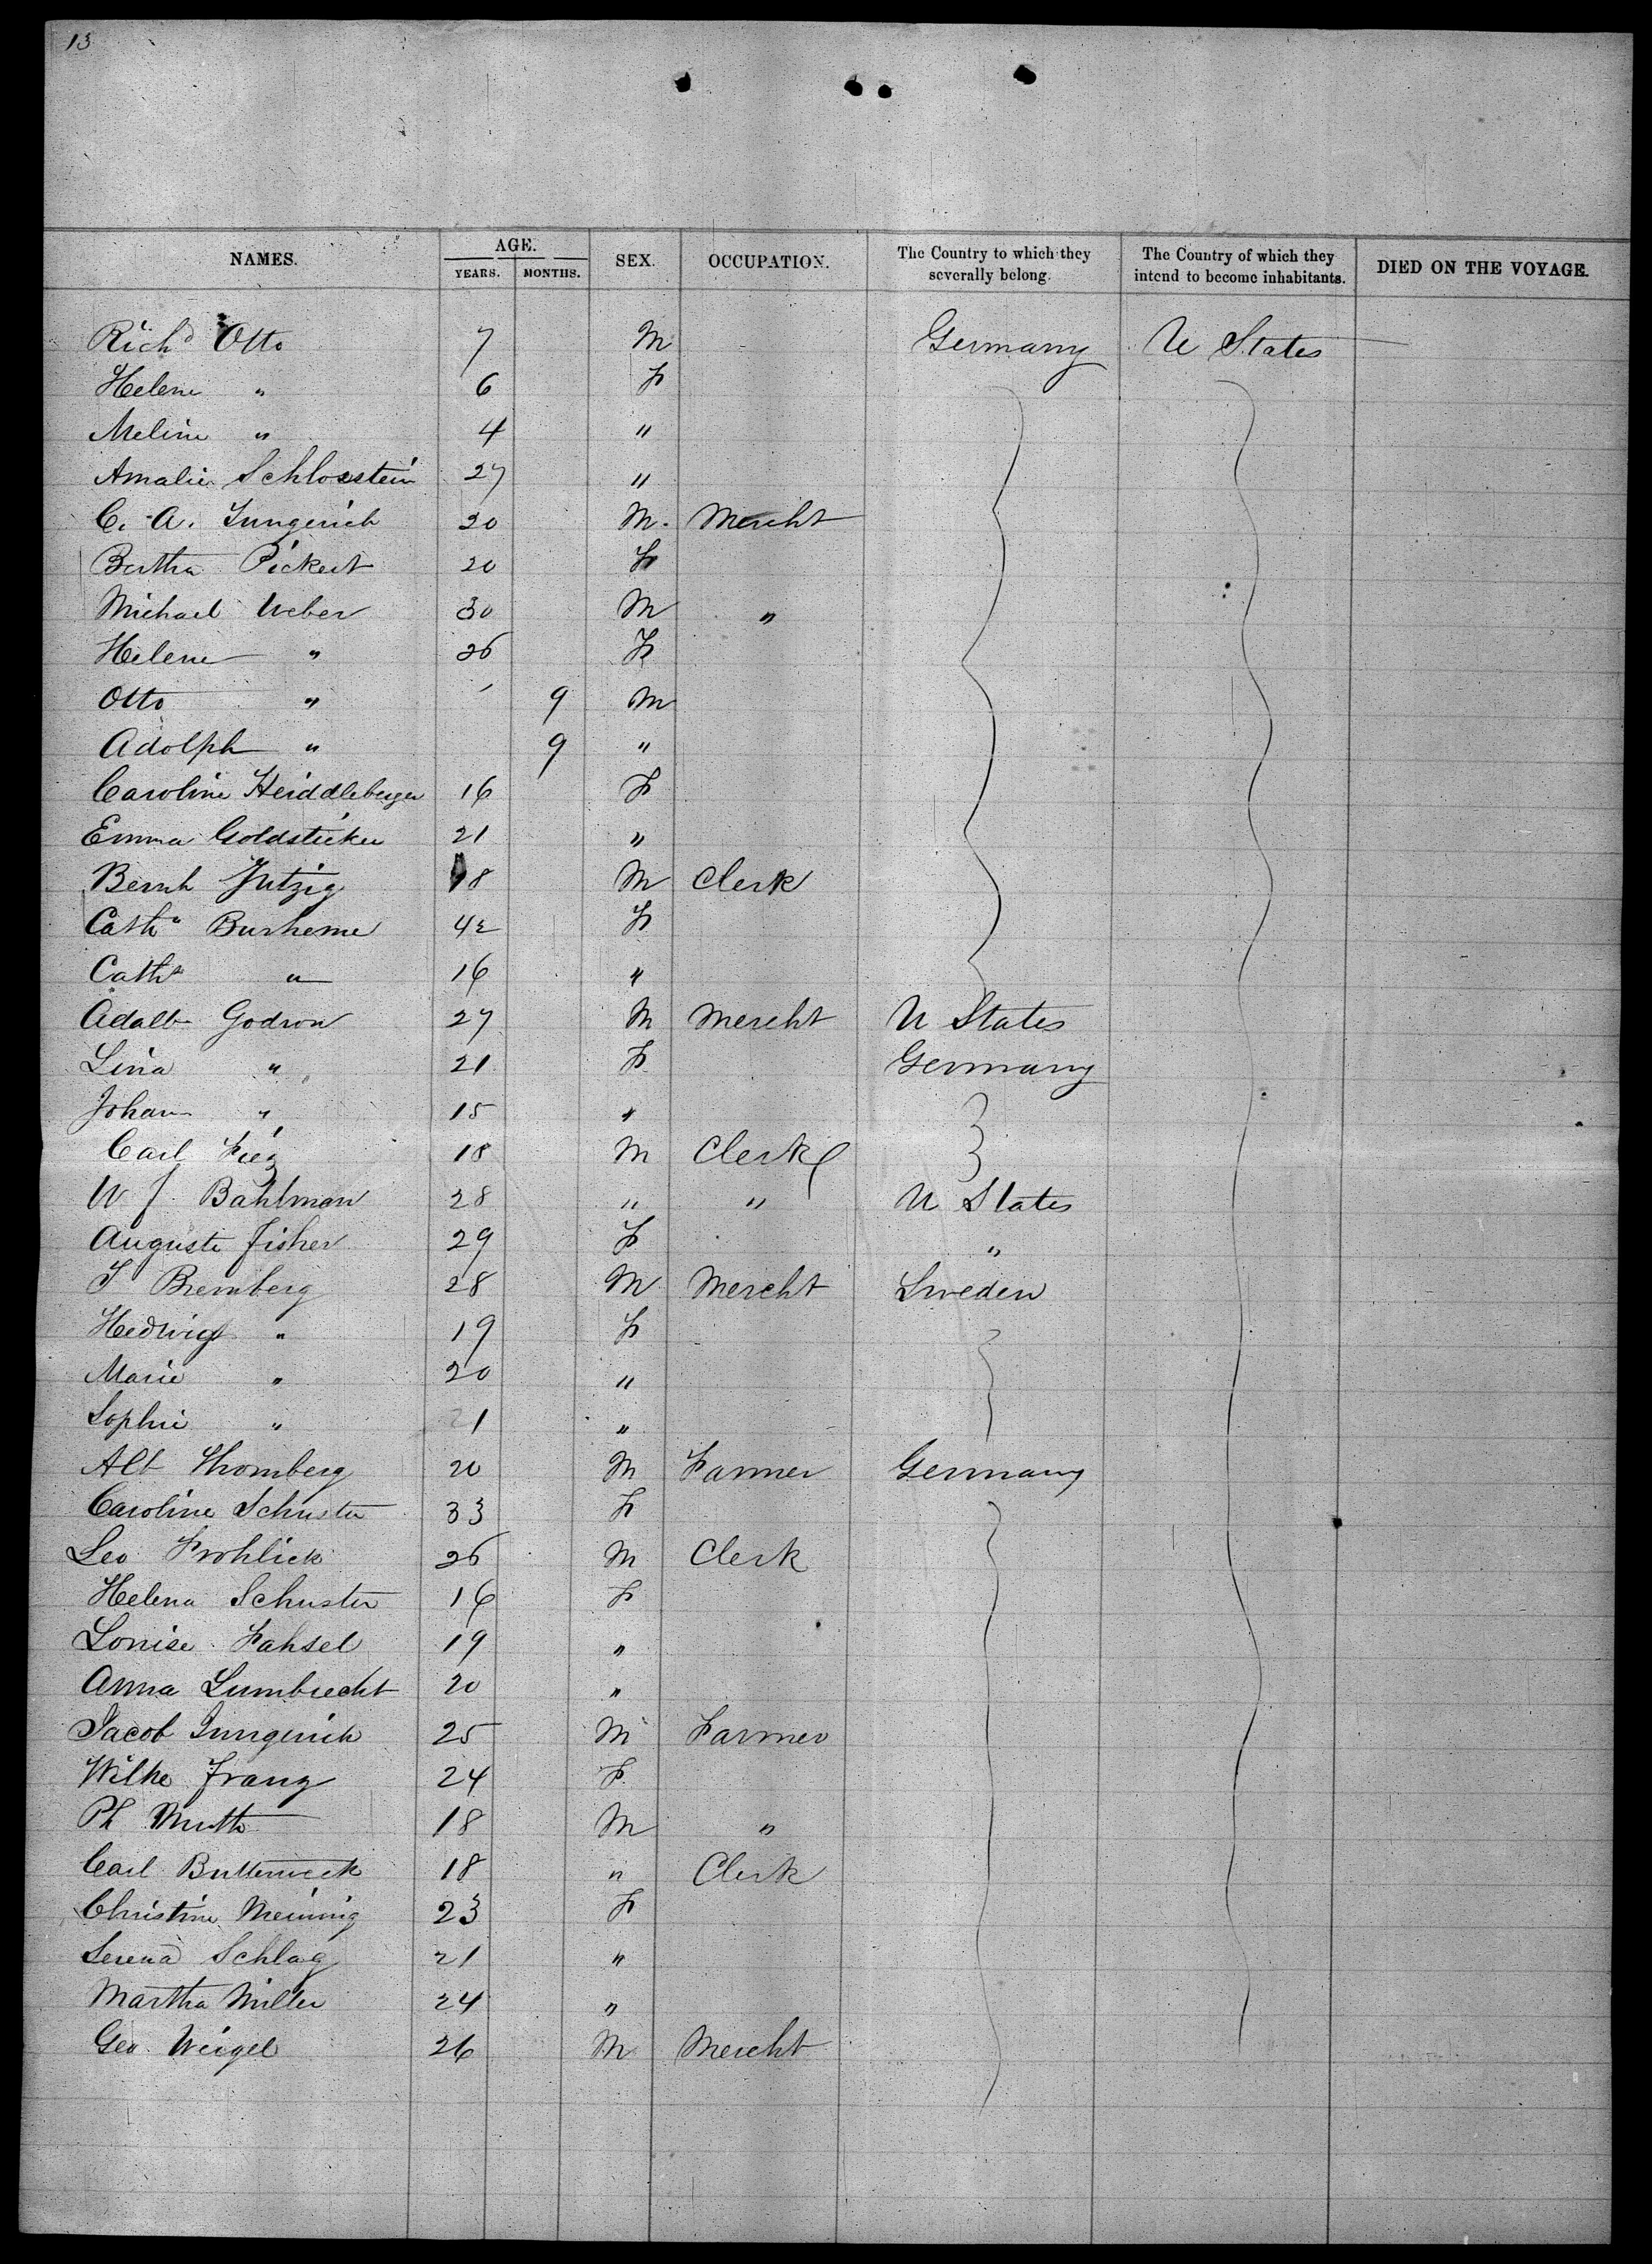 13
NAMES. AGE. YEARS. MONTHS. SEX. OCCUPATION. The Country to which they severally belong. The Country of which they intend to become inhabitants. DIED ON THE VOYAGE.
Richd Otto 7 M Germany U States
Helene " 6 F
Meline " 4 "
Amalie Schlosstein 27 "
C. A. Jungerich 20 M. Mercht
Bertha Pickert 20 F
Michael Weber 30 M "
Helene " 26 F
Otto " 9 M
Adolph " 9 "
Caroline Heiddleberger 16 F
Emma Goldsticker 21 "
Bernh Jutzig 18 M Clerk
Catha Burheme 42 F
Catha " 16 "
Adalb Godron 27 M Mercht U States
Lina " 21 F Germany
Johan " 15 "
Carl Fiez 18 M Clerk
W J Bahlman 28 " " U States
Auguste Fisher 29 F "
J Bremberg 28 M Mercht Sweden
Hedwig " 19 F
Marie " 20 "
Sophie " 21 "
Alb Thomberg 20 M Farmer Germany
Caroline Schuster 33 F
Leo Frohlick 26 M Clerk
Helena Schuster 16 F
Louise Fahsel 19 "
Anna Lumbrecht 20 "
Jacob Jungerich 25 M Farmer
Wilke Franz 24 F
Ph Muth 18 M "
Carl Butterweck 18 " Clerk
Christine Meining 23 F
Serena Schlag 21 "
Martha Miller 24 "
Geo Weigel 26 M Mercht